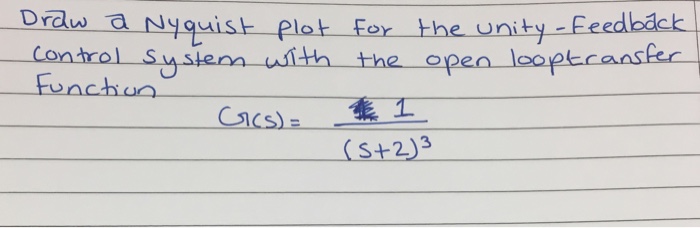 Draw a Nyquist plot for the unity-feedback
control system with the open looptransfer
Function
G(s) = 1
(s+2)³